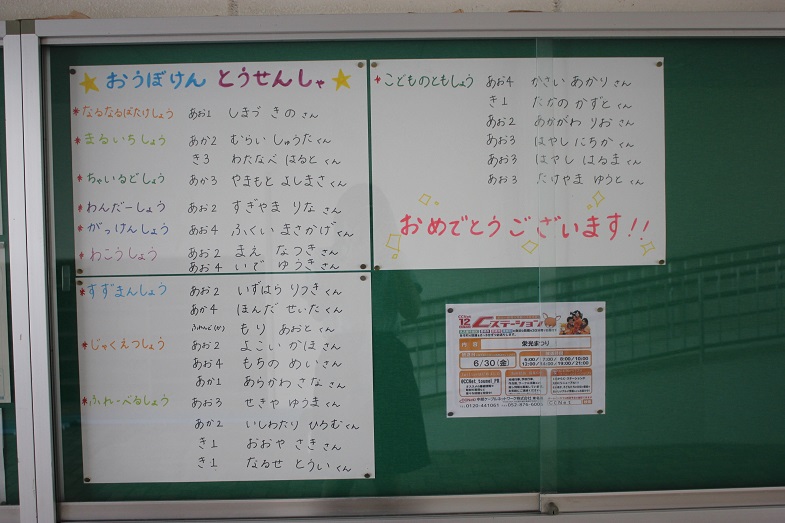 おうぼけん とうせんしゃ
*なるなるぽたけしょう あお1 しまづ きの さん
*まるいちしょう あか2 むらい しゅうた くん
き3 わたなべ はると くん
*ちゃいるどしょう あか3 やまもと よしまさ くん
*わんだーしょう あお2 すぎやま りな さん
*がっけんしょう あお4 ふくい まさかげ くん
*わこうしょう あお2 まえ なつき さん
あお4 いで ゆうき さん
*すずまんしょう あお2 いずはら りつき くん
あか4 ほんだ せいた くん
もり あおと くん
*じゃくえつしょう あお2 よこい かほ さん
あお4 もちの めい さん
あか1 あらかわ さな さん
*ふれーべるしょう あお3 せきや ゆうま くん
あか2 いしわたり ひろむ くん
き1 おおや さき さん
き1 なるせ とうい くん
*こどものともしょう あお4 かさい あかり さん
き1 たかの かずと くん
あお2 あかがわ りお さん
あお3 はやし にちか さん
あお3 はやし はるま くん
あお3 たけやま ゆうと くん
おめでとうございます!!
12
Cステーション
内容 栄光まつり
6/30(金)
6:00/7:00/8:00/10:00
12:00/14:00/19:00/21:00